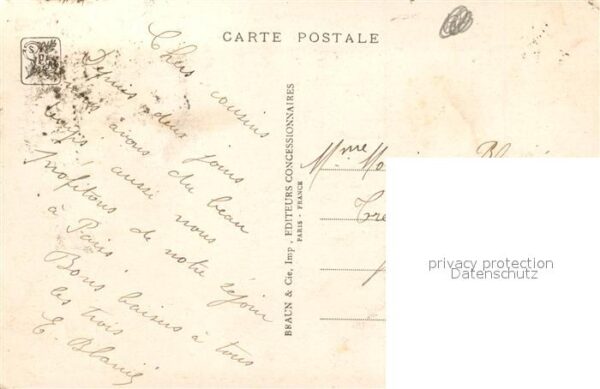 CARTE POSTALE
Chers cousins
Depuis deux jours
nous avons du beau
temps aussi nous
profitons de notre séjour
à Paris.
Bons baisers à tous
les trois
E.
BRAUN & Cie, Imp., EDITEURS CONCESSIONNAIRES
PARIS - FRANCE
Mme
privacy protection
Datenschutz